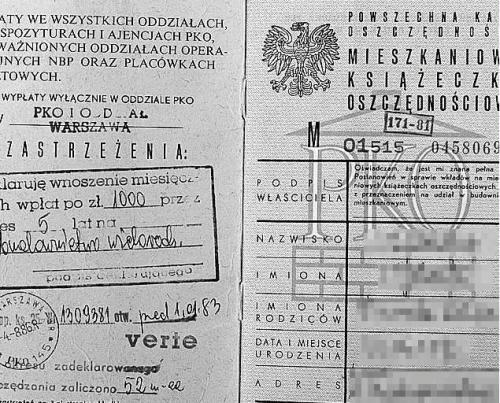 ATY WE WSZYSTKICH ODDZIAŁACH,
SPOZYTURACH I AJENCJACH PKO,
WAŻNIONYCH ODDZIAŁACH OPERA-
JNYCH NBP ORAZ PLACÓWKACH
TOWYCH.
WYPŁATY WYŁĄCZNIE W ODDZIALE PKO
PKO I O DZIAŁ
WARSZAWA
ZASTRZEŻENIA:
klaruję wnoszenie miesięcz
h wpłat po zł. 1000 przez
es 5- lat na
budownictwo wielorodz.
podpis deklarującego
WARSZAWA
1309381 otw. przed 1.01.83
verte
okresu zadeklarowanego
zczędzania zaliczono 52 m-ce
POWSZECHNA KA
OSZCZĘDNOŚ
MIESZKANIOW
KSIĄŻECZK
OSZCZĘDNOŚCIOW
171-81
M 01515 0458069
PKO
Oświadczam, że jest mi znana pełna
Postanowień w sprawie wkładów na mie
niowych książeczkach oszczędnościowych
z przeznaczeniem na udział w budowni
mieszkaniowym.
PODPIS
WŁAŚCICIELA
NAZWISKO
IMIONA
IMIONA
RODZICÓW
DATA I MIEJSCE
URODZENIA
ADRES